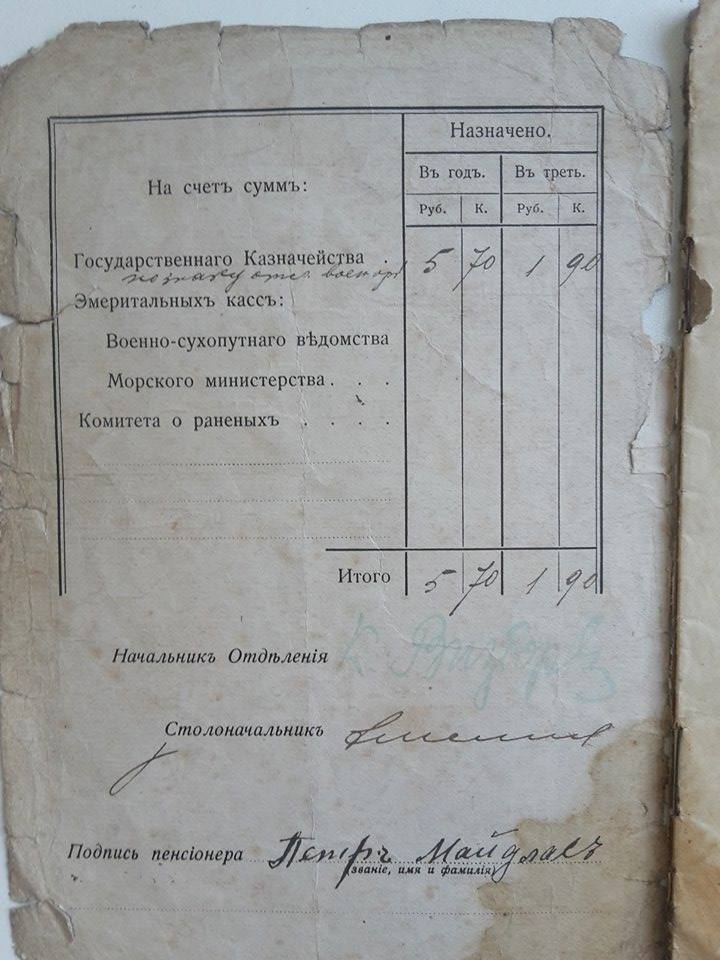 Назначено.
На счетъ суммъ:
Въ годъ. Въ треть.
Руб. К. Руб. К.
Государственнаго Казначейства . 5 70 1 90
по знаку отл. воен. орд.
Эмеритальныхъ кассъ:
Военно-сухопутнаго вѣдомства
Морского министерства . . .
Комитета о раненыхъ . . . .
Итого 5 70 1 90
Начальникъ Отдѣленія К.
Столоначальникъ
Подпись пенсіонера Петръ Майдлаеъ
(званіе, имя и фамилія)